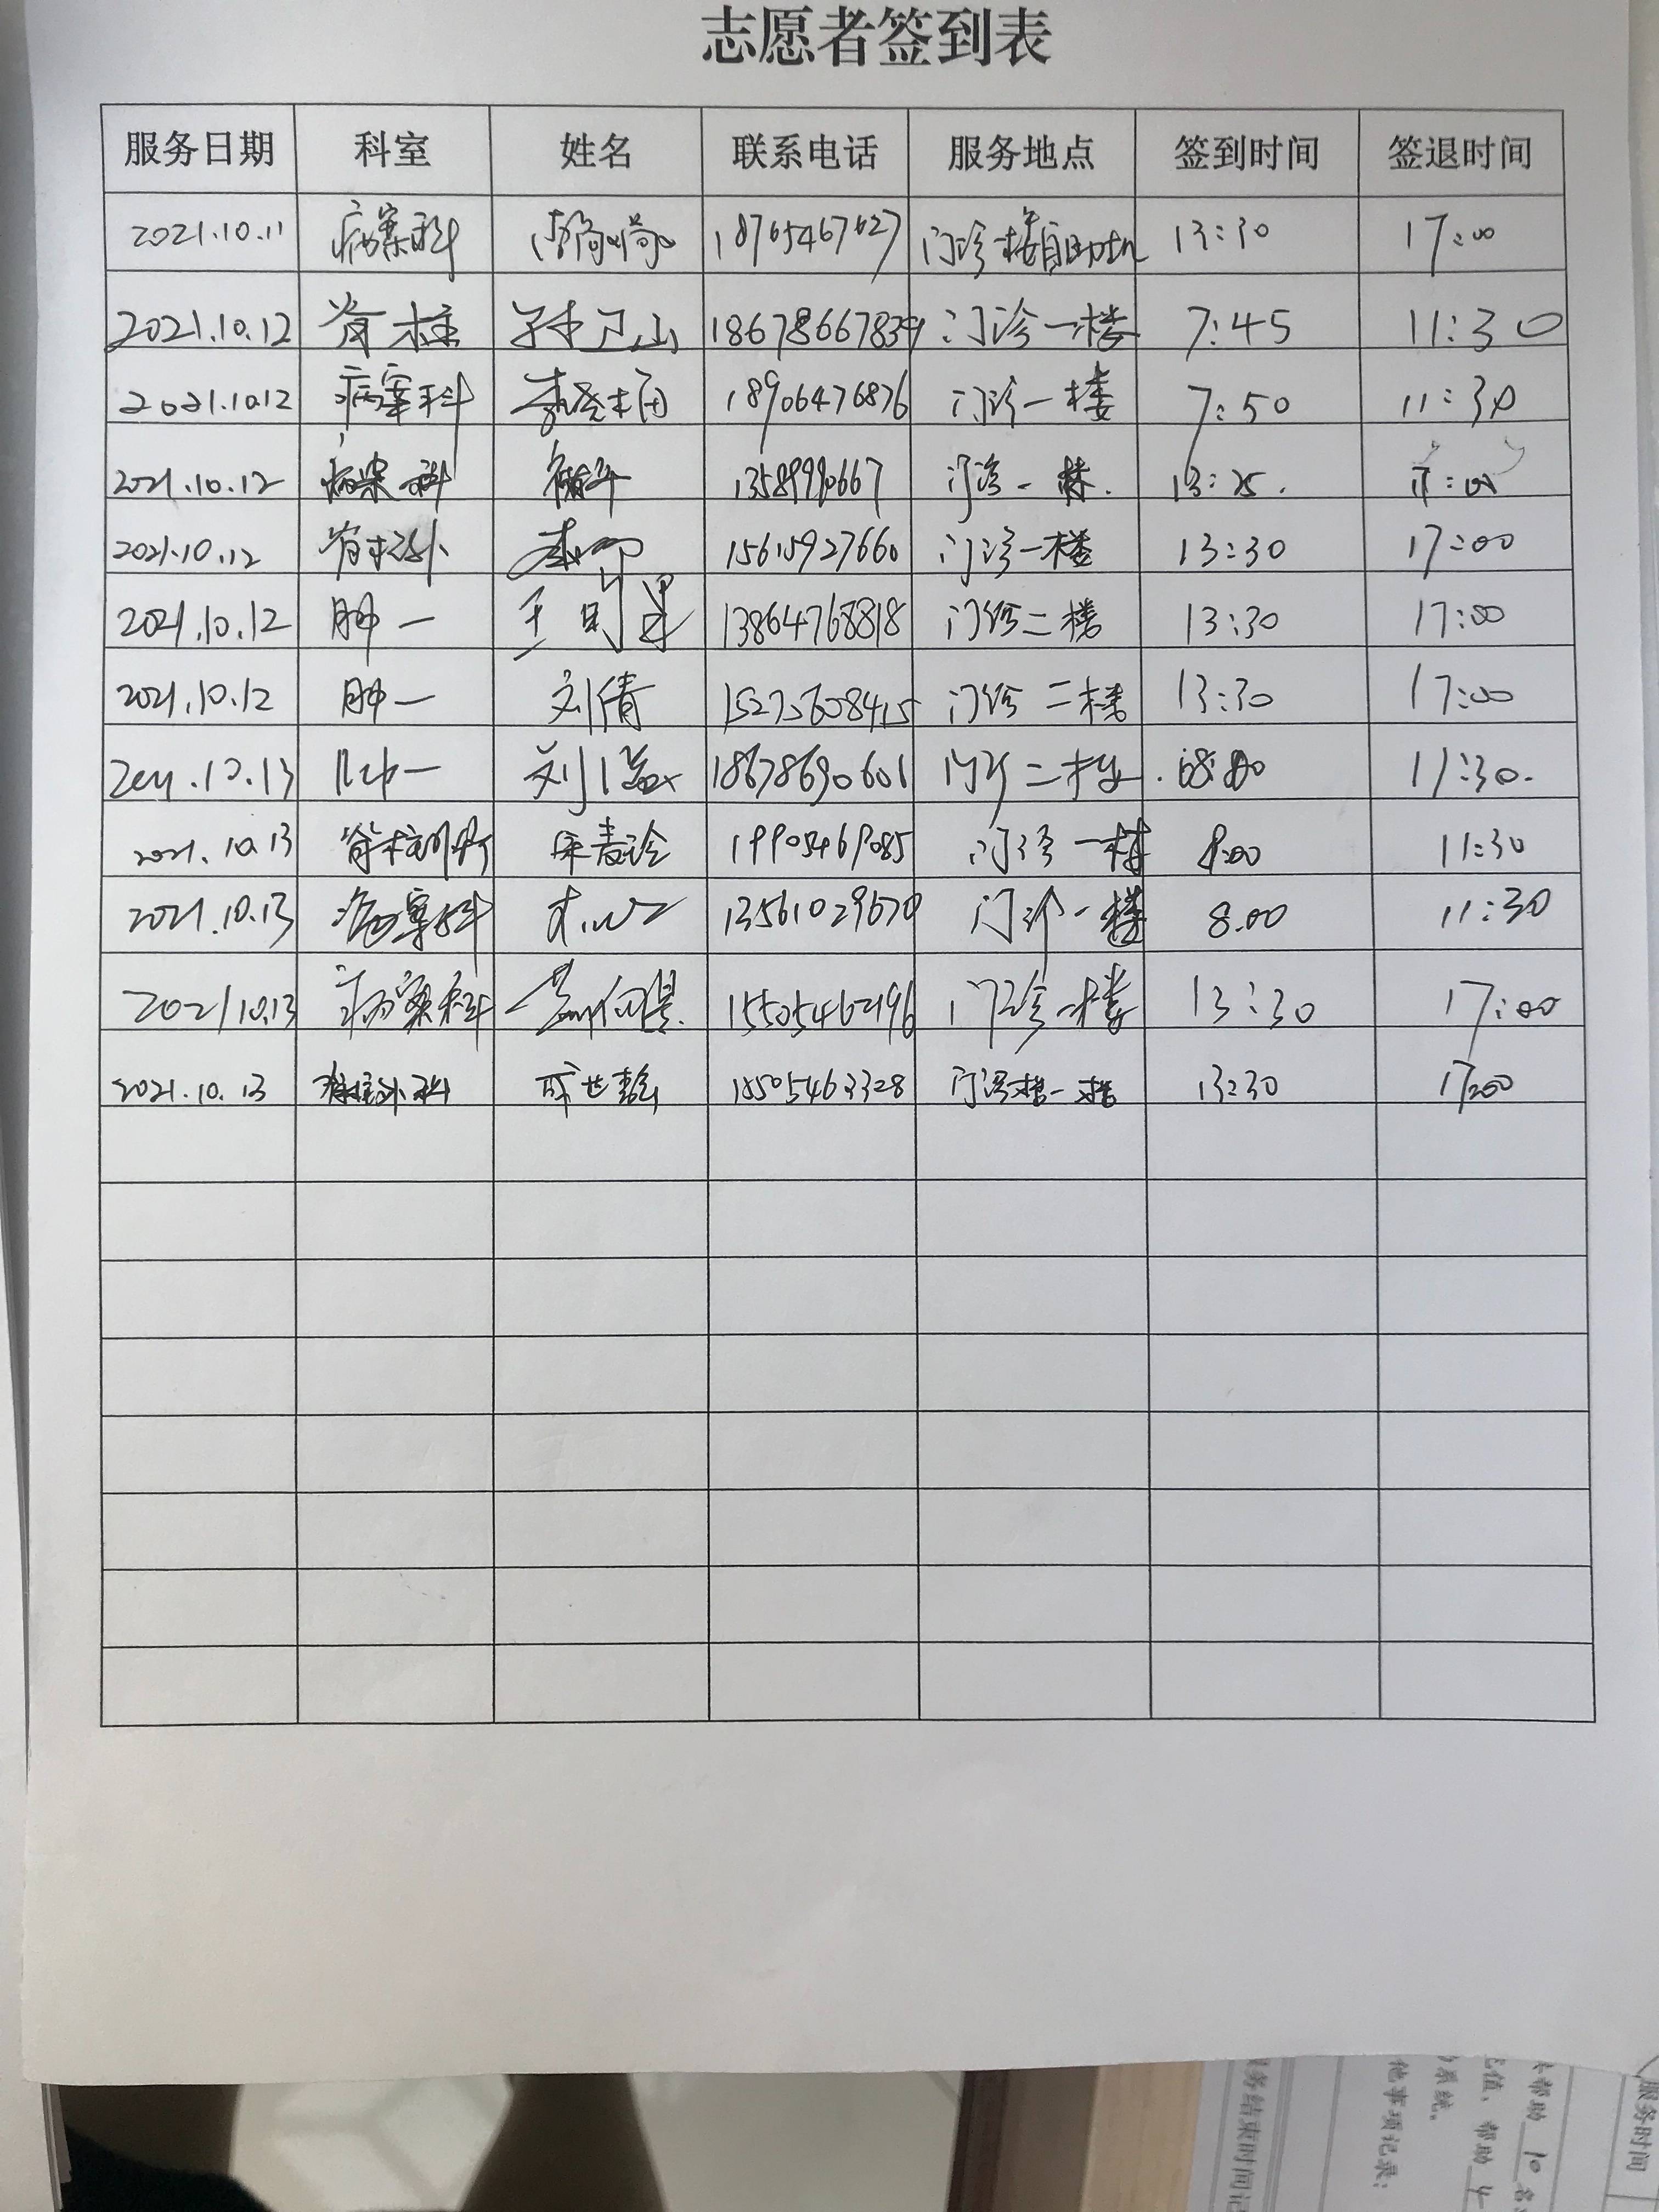 志愿者签到表
服务日期 科室 姓名 联系电话 服务地点 签到时间 签退时间
2021.10.11 病案科 18765467627 门诊一楼自助机 13:30 17:00
2021.10.12 脊柱 孙卫山 门诊一楼 7:45 11:30
2021.10.12 病案科 18906476876 门诊一楼 7:50 11:30
2021.10.12 病案科 门诊一楼. 13:25. 17:00
2021.10.12 脊柱外 15615927660 门诊一楼 13:30 17:00
2021.10.12 肿一 13864768818 门诊二楼 13:30 17:00
2021.10.12 肿一 刘倩 15275608415 门诊二楼 13:30 17:00
2021.10.13 肿一 18678690601 门诊二楼. 08:00 11:30.
2021.10.13 19905469085 门诊一楼 8:00 11:30
2021.10.13 病案科 13561029670 门诊一楼 8.00 11:30
2021.10.13 病案科 15505462196 门诊一楼 13:30 17:00
2021.10.13 脊柱外科 15505463328 门诊楼一楼 13:30 17:00
服务时间
帮助 10
值、帮助 4
系统。
他事项记录:
务结束时间记